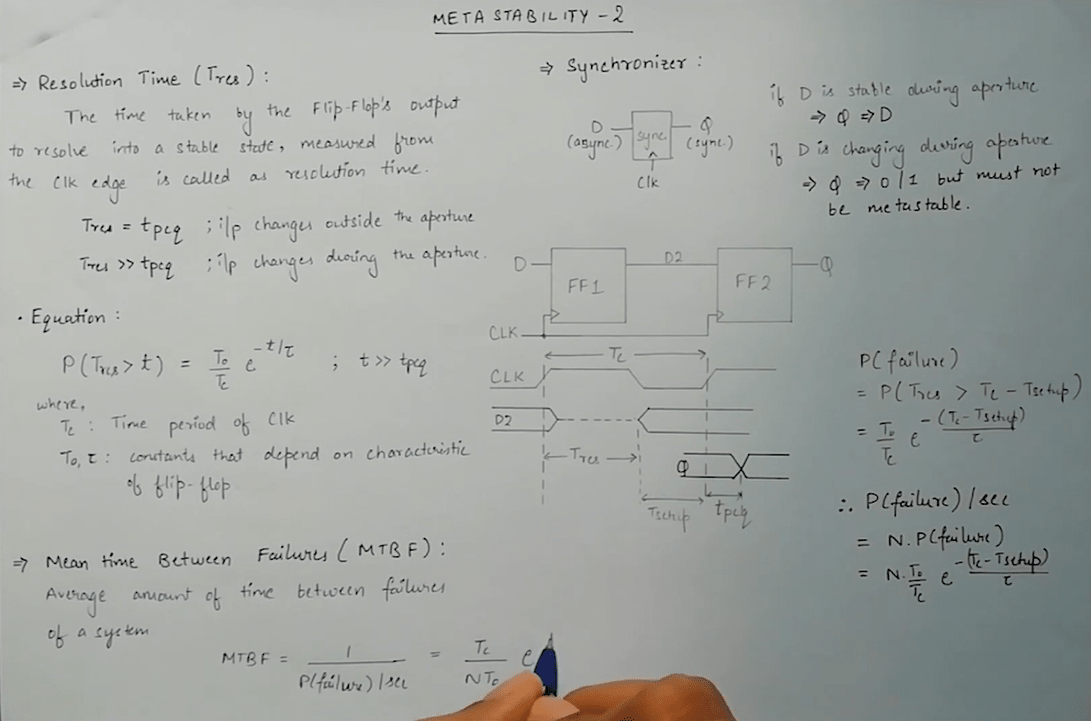 META STABILITY - 2
⇒ Resolution Time (Tres) :
The time taken by the Flip-Flop's output
to resolve into a stable state, measured from
the Clk edge is called as resolution time.
Tres = tpcq ; i/p changes outside the aperture
Tres >> tpcq ; i/p changes during the aperture.
• Equation :
P(Tres > t) = To/Tc e^(-t/τ) ; t >> tpcq
where,
Tc : Time period of Clk
To, τ : constants that depend on characteristic
of flip-flop
⇒ Mean time Between Failures (MTBF) :
Average amount of time between failures
of a system
MTBF = 1 / P(failure) /sec = Tc / NTo e
⇒ Synchronizer :
D sync. Q
(async.) (sync.)
Clk
if D is stable during aperture
⇒ Q ⇒ D
if D is changing during aperture
⇒ Q ⇒ 0/1 but must not
be metastable.
D FF1 D2 FF2 Q
CLK
Tc
CLK
D2
Tres
Q
Tsetup tpcq
P(failure)
= P(Tres > Tc - Tsetup)
= To/Tc e^(-(Tc-Tsetup)/τ)
∴ P(failure) /sec
= N.P(failure)
= N.To/Tc e^(-(Tc-Tsetup)/τ)